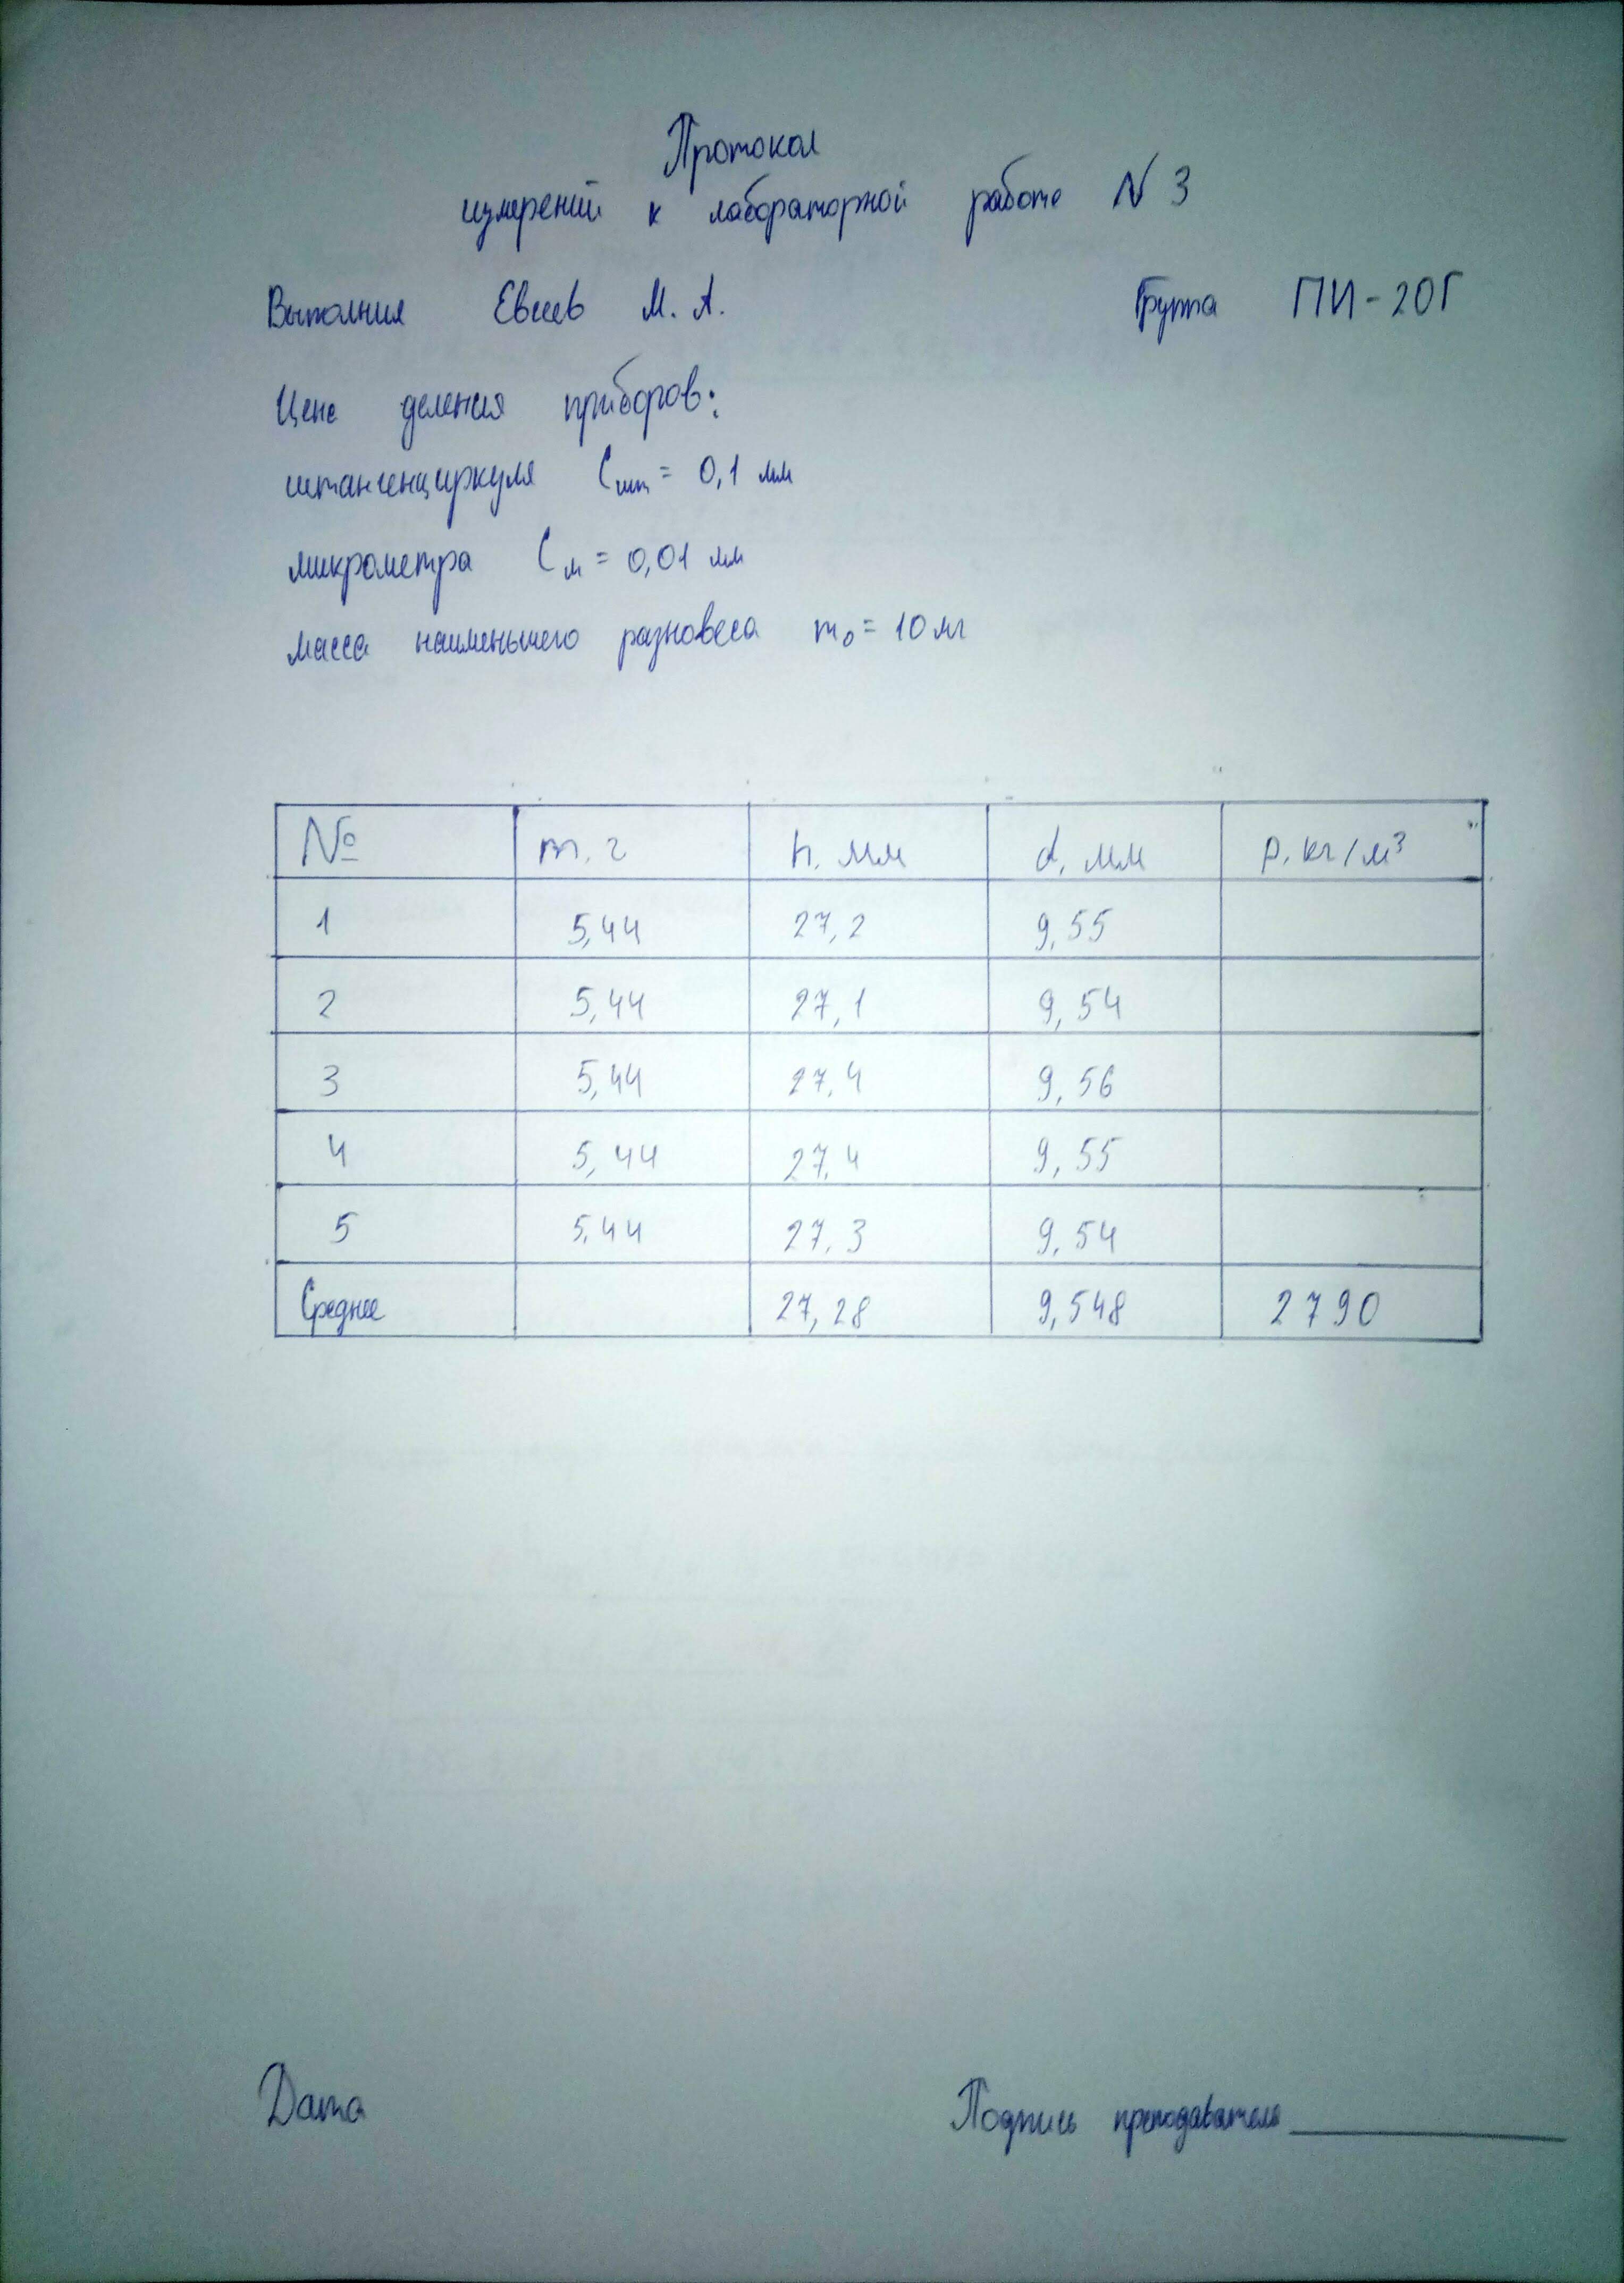 Протокол
измерений к лабораторной работе N 3
Выполнил Евсеев М. А. Группа ПИ-20Г
Цена деления приборов:
штангенциркуля Cшт = 0,1 мм
микрометра Cм = 0,01 мм
масса наименьшего разновеса m₀ = 10 мг
№ m. г h. мм d, мм ρ. кг/м³
1 5,44 27,2 9,55
2 5,44 27,1 9,54
3 5,44 27,4 9,56
4 5,44 27,4 9,55
5 5,44 27,3 9,54
Среднее 27,28 9,548 2790
Дата Подпись преподавателя